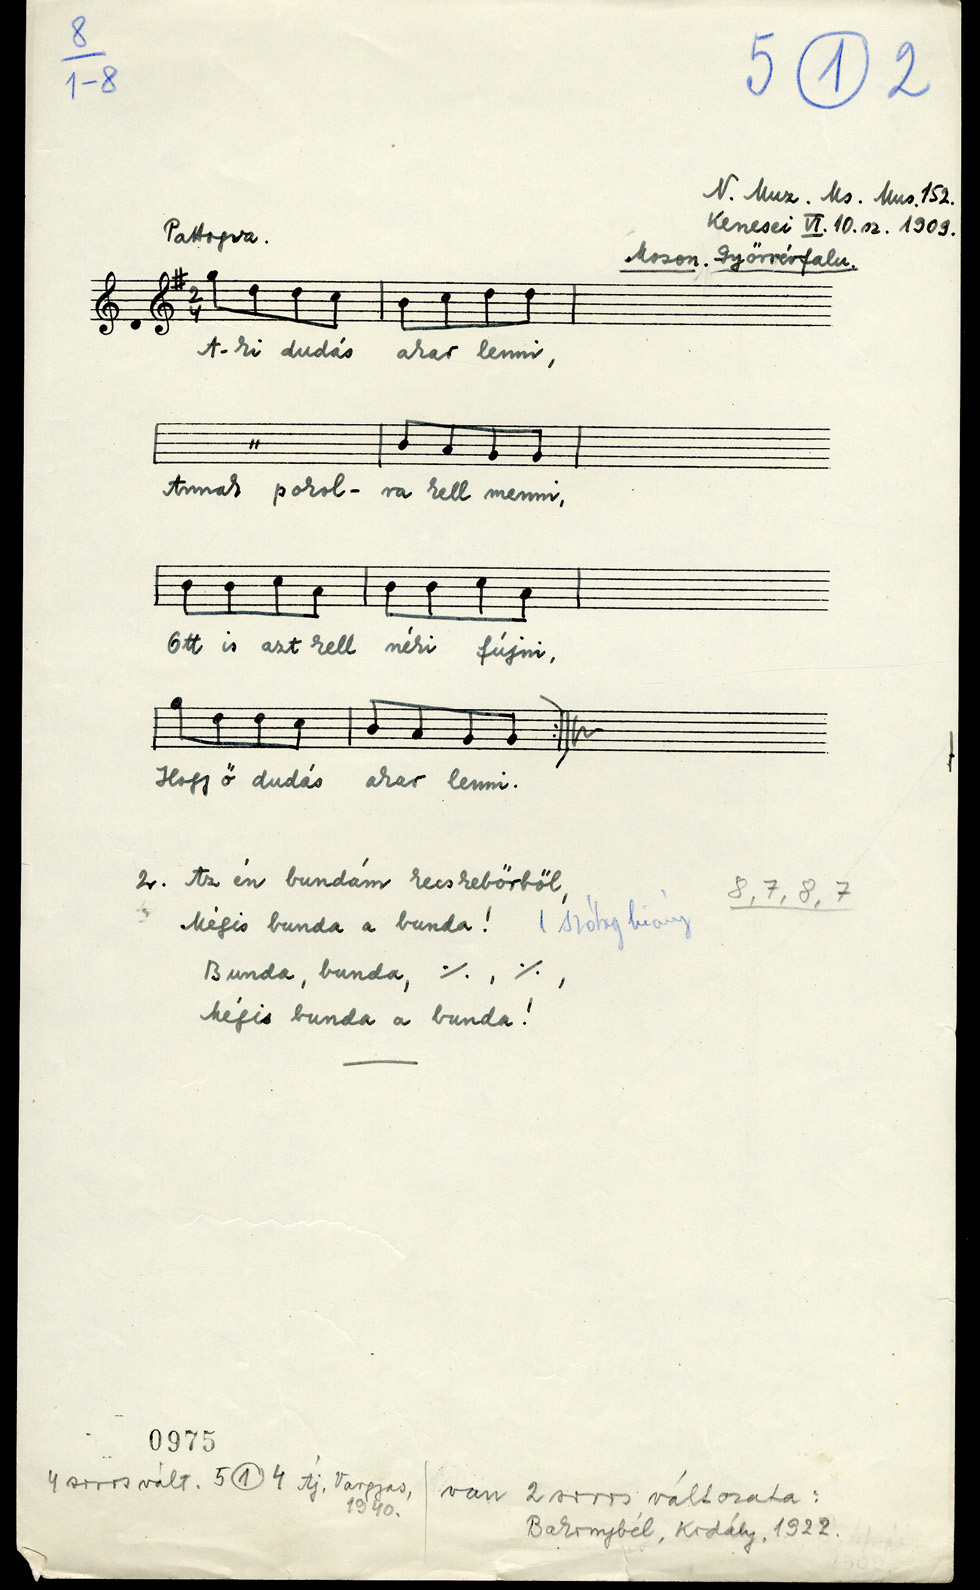 8
1-8
5 ① 2
N. Muz. Ms. Mus. 152.
Kenesei VI. 10. sz. 1909.
Moson. Győrrévfalu.
Pattogva.
2
4
A-ki dudás akar lenni,
〃
Annak pokol- ra kell menni,
Ott is azt kell néki fújni,
Hogy ő dudás akar lenni.
2. Az én bundám kecskebőrből,
Mégis bunda a bunda! 1 szótag hiány
8, 7, 8, 7
Bunda, bunda, ·/. , ·/. ,
Mégis bunda a bunda!
0975
4 soros vált. 5 ① 4 Áj, Vargyas,
1940.
van 2 soros változata:
Bakonybél, Kodály, 1922.